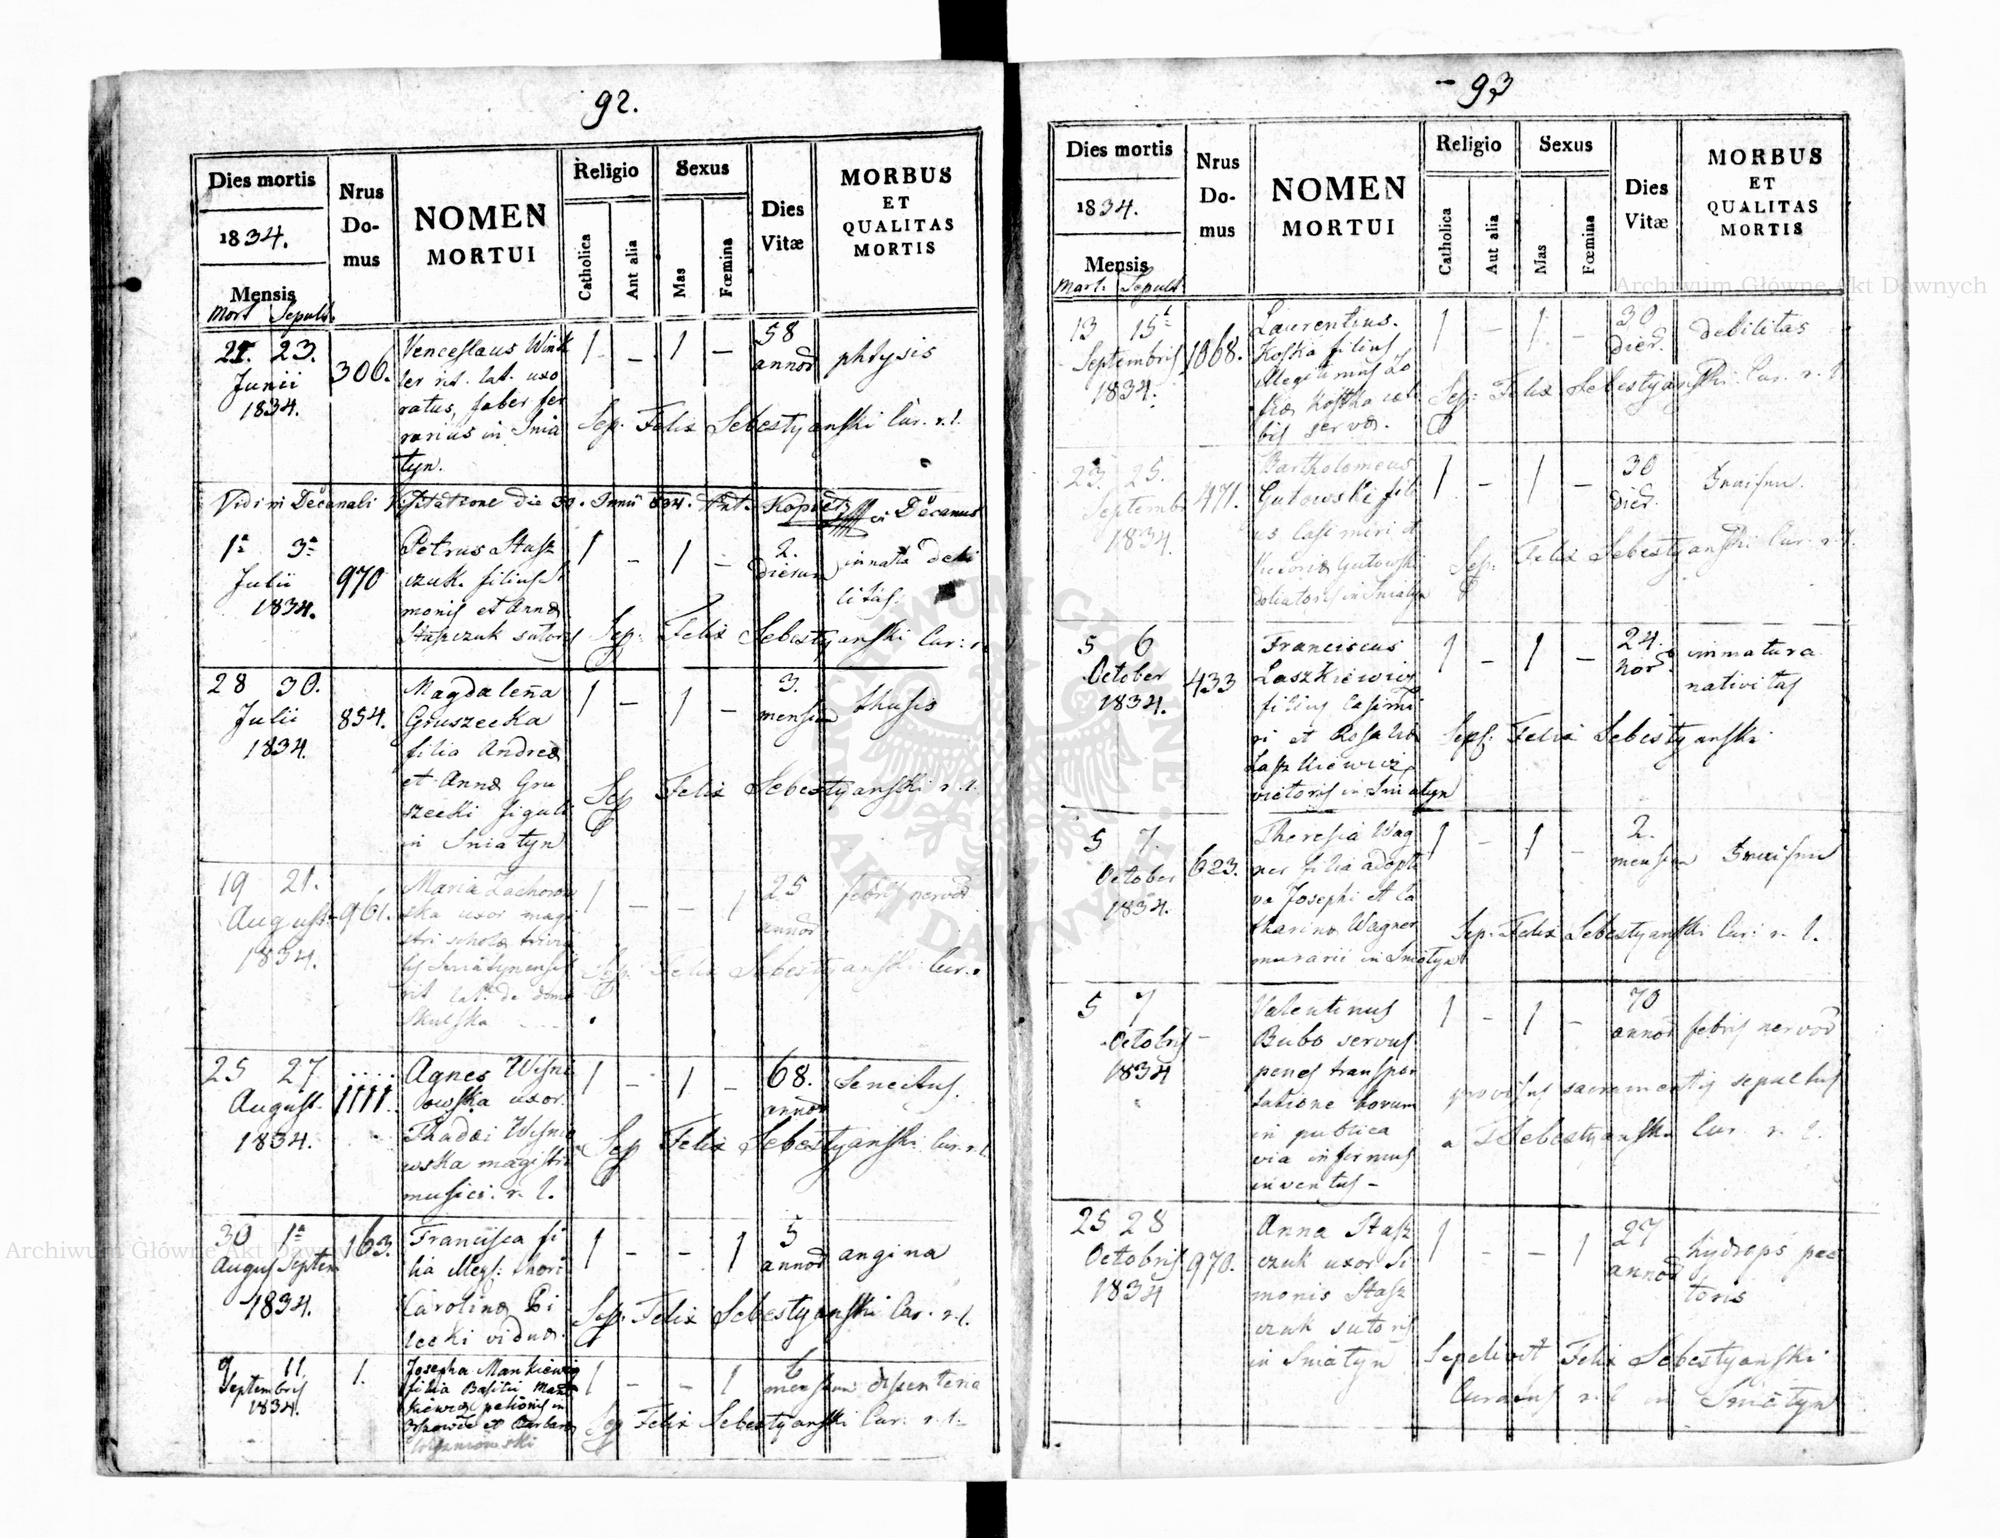 92.
Dies mortis
Nrus Domus
NOMEN MORTUI
Religio
Sexus
Catholica
Aut alia
Mas
Fœmina
Dies Vitæ
MORBUS ET QUALITAS MORTIS
1834.
Mensis
Mort. Sepult.
23.
Junii
1834.
306.
Venceslaus Wink
ler rit. lat. uxo
ratus, faber fer
rarius in Snia
tyn.
1 – 1 –
58
annor
phtysis
Sep. Felix Sebestyanski Cur. r. l.
Vidi in Decanali Visitatione die 30. Junii 834. Ant.
Decanus
1a 3a
Julii
1834.
970
Petrus Stasz
czuk filius Si
monis et Annæ
Staszczuk sutoris
1 – 1 –
2.
dierum
innata debi
litas.
Sep. Felix Sebestyanski Cur: r.
28 30.
Julii
1834.
854.
Magdalena
Gruszecka
filia Andreæ
et Annæ Gru
szecki figuli
in Sniatyn
1 – 1 –
3.
mensium
thusis
Sep Felix Sebestyanski r. l.
19 21.
August.
1834.
961.
Maria Zachorow
ska uxor magi
stri scholæ trivia
lis Sniatynensis
rit. lat. de domo
Skulska
1 – – 1
25
annor
febris nervos
Sep: Felix Sebestyanski Cur.
25 27
August.
1834.
1111.
Agnes Wisni
owska uxor
Thadæi Wisnio
wska magistri
musici. r. l.
1 – 1 –
68.
annor
Senectus.
Sep Felix Sebestyanski Cur. r. l.
30 1a
August Septem
1834.
163.
Francisca fi
lia Illegi: thori
Carolinæ Pi
lecki viduæ.
1 – – 1
5
annor
angina
Sep. Felix Sebestyanski Cur. r. l.
9 11.
Septembris
1834.
1.
Josepha Mankiewicz
filia Basilii
et Barbaræ
1 – – 1
6
mensium
disenteria
Sep Felix Sebestyanski Cur. r. l.
– 93
Dies mortis
Nrus Domus
NOMEN MORTUI
Religio
Sexus
Catholica
Aut alia
Mas
Fœmina
Dies Vitæ
MORBUS ET QUALITAS MORTIS
1834.
Mensis
Mort. Sepult
13 15
Septembris
1834.
1068.
Laurentius
Koska filius
illegitimus
1 – 1. –
30
dier.
debilitas
Sep: Felix Sebestyanski Cur. r. l.
23. 25.
Septembr
1834.
471.
Bartholomeus
Gutowski fili
us Casimiri et
Victoriæ Gutowski
doliatoris in Sniatyn
1 – 1 –
30
dier.
Fraisen.
Sep: Felix Sebestyanski Cur. r. l.
5 6
October
1834.
433
Franciscus
Laszkiewicz
filius Casimi
ri et Rosaliæ
Laszkiewicz
victoris in Sniatyn
1 – 1 –
24.
hor.
immatura
nativitas
Sep: Felix Sebestyanski
5 7.
October
1834.
623.
Theresia Wag
ner filia adopti
va Josephi et Ca
tharinæ Wagner
murarii in Sniatyn
1 – 1 –
2.
mensium
Fraisen
Sep: Felix Sebestyanski Cur: r. l.
5 7
Octobris
1834
–
Valentinus
Bubo servus
penes transpor
tatione boum
in publica
via infirmus
inventus –
1 – 1 –
70
annor
febris nervos
provisus sacramentis sepultus
a F Sebestyanski Cur. r. l.
25 28
Octobris
1834
970.
Anna Stasz
czuk uxor Si
monis Stasz
czuk sutoris
in Sniatyn
1 – – 1
27
annor
hydrops pec
toris
Sepelivit Felix Sebestyanski
Curatus r. l in Sniatyn
Archiwum Główne Akt Dawnych
Archiwum Główne Akt Dawnych
ARCHIWUM GŁÓWNE AKT DAWNYCH